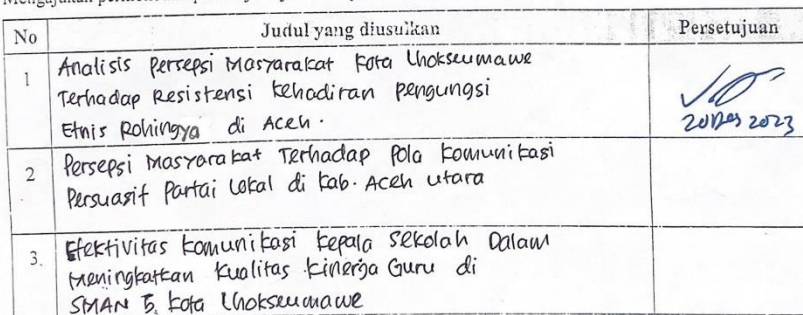 No Judul yang diusulkan Persetujuan
1 Analisis persepsi Masyarakat Kota Lhokseumawe
Terhadap Resistensi kehadiran pengungsi
Etnis Rohingya di Aceh.
20 Des 2023
2 Persepsi Masyarakat Terhadap Pola Komunikasi
Persuasif Partai Lokal di kab. Aceh utara
3. Efektivitas komunikasi kepala sekolah Dalam
Meningkatkan Kualitas Kinerja Guru di
SMAN 5 Kota Lhokseumawe